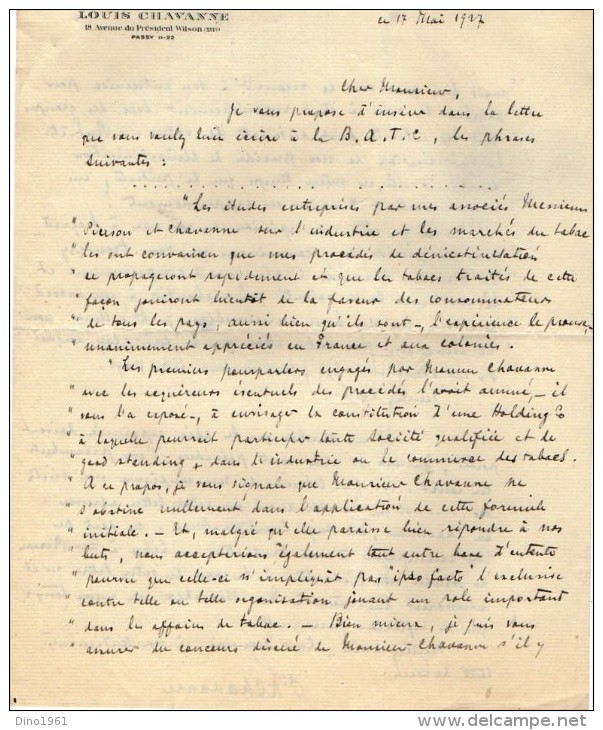 LOUIS CHAVANNE
18 Avenue du Président Wilson (XVIe)
PASSY 11-22
ce 17 Mai 1927
Cher Monsieur,
Je vous propose d'insérer dans la lettre
que vous voulez bien écrire à la B.A.T.C, les phrases
suivantes :
"Les études entreprises par mes associés Messieurs
" et Chavanne sur l'industrie et les marchés du tabac
" les ont convaincu que mes procédés de dénicotinisation
" se propageront rapidement et que les tabacs traités de cette
" façon jouiront bientôt de la faveur des consommateurs
" de tous les pays, aussi bien qu'ils sont -, l'expérience le prouve,
" unanimement appréciés en France et aux colonies.
" Les premiers pourparlers engagés par Monsieur Chavanne
" avec les acquéreurs éventuels des procédés l'avait amené, - il
" vous l'a exposé -, à envisager la constitution d'une Holding Co
" à laquelle pourrait participer toute société qualifiée et de
" good standing, dans l'industrie ou le commerce des tabacs.
" A ce propos, je vous signale que Monsieur Chavanne ne
" s'obstine nullement dans l'application de cette formule
" initiale. - Et, malgré qu'elle paraisse bien répondre à nos
" buts, nous accepterions également tout autre base d'entente
" pourvu que celle-ci n'impliquât pas "ipso facto" l'exclusive
" contre telle ou telle organisation jouant un role important
" dans les affaires de tabac. - Bien mieux, je puis vous
" assurer du concours de Monsieur Chavanne s'il y
Dino1961
delcampe.net